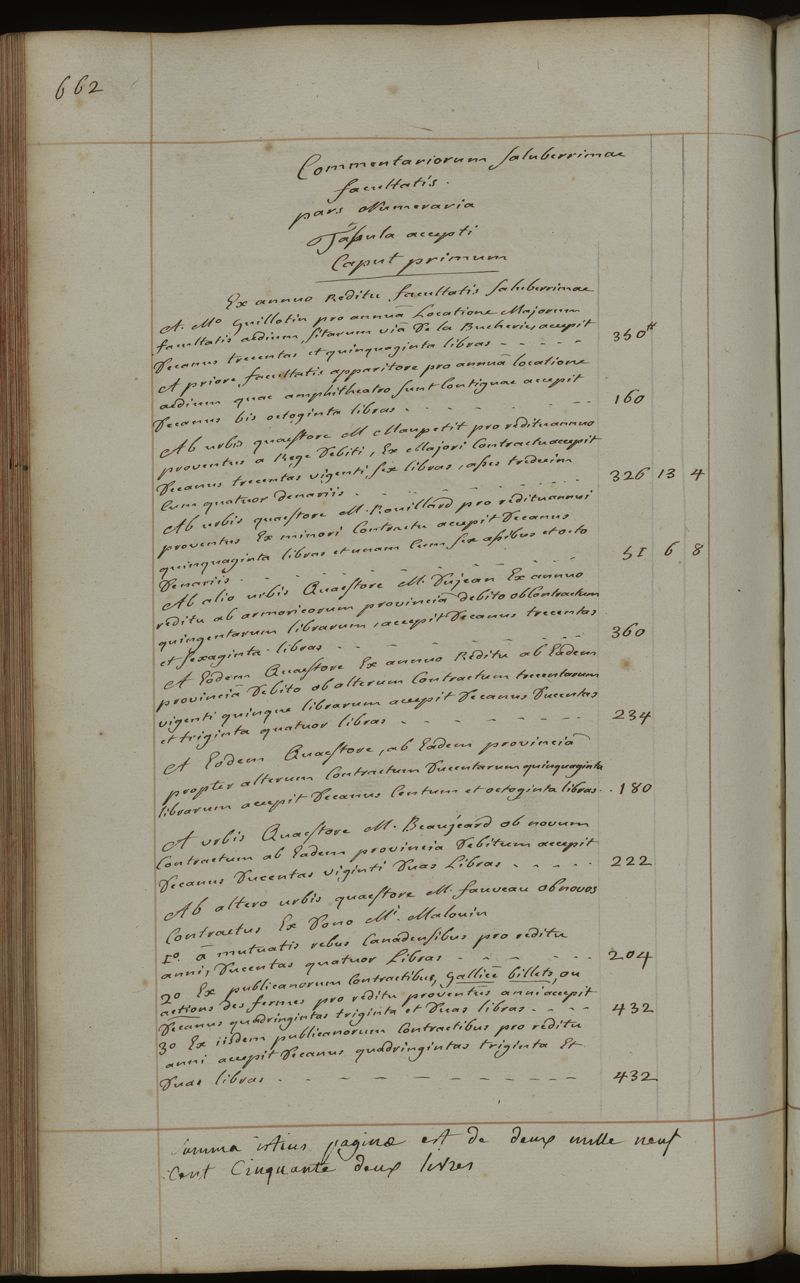 662
Commentariorum Saluberrimae
facultatis.
pars Numeraria
Tabula accepti
Caput primum
Ex annuo Reditu facultatis Saluberrimae
A. Mo Guillotin pro annuâ Locatione Majorum
facultatis aedium, sitarum viâ De la Bucherie, accepit
Decanus trecentas et quinquaginta libras - - - - - 350tt
A priore facultatis apparitore pro annuâ locatione
aedium quae amphitheatro sunt Contiguae accepit
Decanus bis octoginta libras - - - - - - - 160
Ab urbis quaestore M Maupetit pro redituannuo
proventus a Rege Debiti, Ex Majori Contractu accepit
Decanus trecentas vigenti sex libras, asses tredecim
Cum quatuor denariis - - - - - - - - 326 13 4
Ab urbis quaestore M. Rouillard pro redituannui
proventus Ex minori Contractu accepit Decanus
quinquaginta libras et unam Cum sex assibus et octo
Denariis - - - - - - - - - - 51 6 8
Ab alio urbis Quaestore M. Dujean Ex annuo
reditu ab armoricorum provinciâ debito ob Contractum
quingentarum librarum, accepit Decanus trecentas
et sexaginta libras - - - - - - - 360
A Eodem Quaestore Ex annuo Reditu ab Eâdem
provinciâ Debito ob alterum Contractum trecentarum
vigenti quinque librarum accepit Decanus Ducentas
et triginta quatuor libras - - - - - - - - 234
A Eodem Quaestore, ab Eadem provinciâ
propter alterum Contractum Ducentarum quinquaginta
librarum accepit Decanus Centum et octoginta libras - - 180
A urbis Quaestore M. Beaujeard ob novum
Contractum ab Eadem provincia Debitum accepit
Decanus Ducentas viginti Duas Libras - - - - - 222
Ab altero urbis quaestore M. fauveau ob novos
Contractus Ex Dono Mi. Malouin
1o. â mutuatis rebus Canadensibus pro reditu
anni, Ducentas quatuor Libras - - - - - - 204
2o Ex publicanorum Contractibus, Gallicè billets, ou
actions des fermes pro reditu proventûs anni accepit
Decanus quadringintas triginta et Duas libras - - - - 432
3o Ex iisdem publicanorum Contractibus pro reditu
anni accepit Decanus quadringintas triginta Et
Duas libras - - - - - - - - - - - 432
Summa istius paginae est de deux mille neuf
Cent Cinquante deux livres